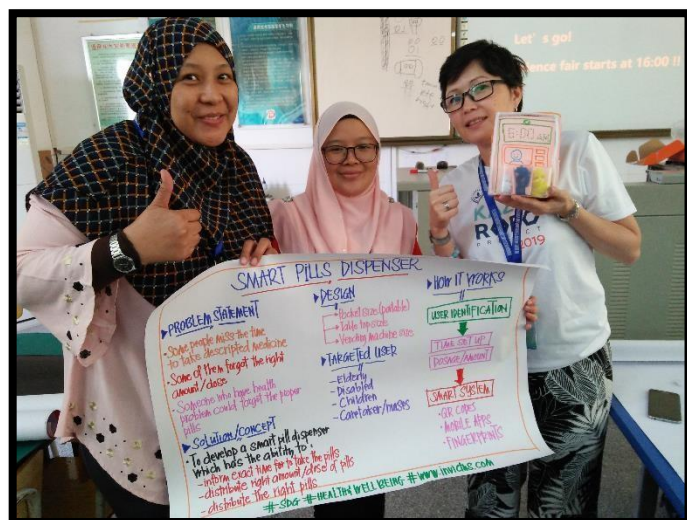 Let's go!
ence fair starts at 16:00 !!
6:00 AM
2019
SMART PILLS DISPENSER
▸PROBLEM STATEMENT
-Some people miss the time
to take descripted medicine
-Some of them forgot the right
amount/dose
-Someone who have health
problem could forget the proper
pills
▸SOLUTION/CONCEPT
-To develop a smart pill dispenser
which has the ability to:
-inform exact time for to take the pills
-distribute right amount/dose of pills
-distribute the right pills
▸DESIGN
-Pocket size (portable)
-Table top scale
-Vending machine size
▸TARGETED USER
-Elderly
-Disabled
-Children
-Caretaker/nurses
▸HOW IT WORKS
USER IDENTIFICATION
TIME SET UP
DOSAGE/AMOUNT
SMART SYSTEM
-QR CODES
-MOBILE APPS
-FINGERPRINTS
#SDG #HEALTHY WELL BEING